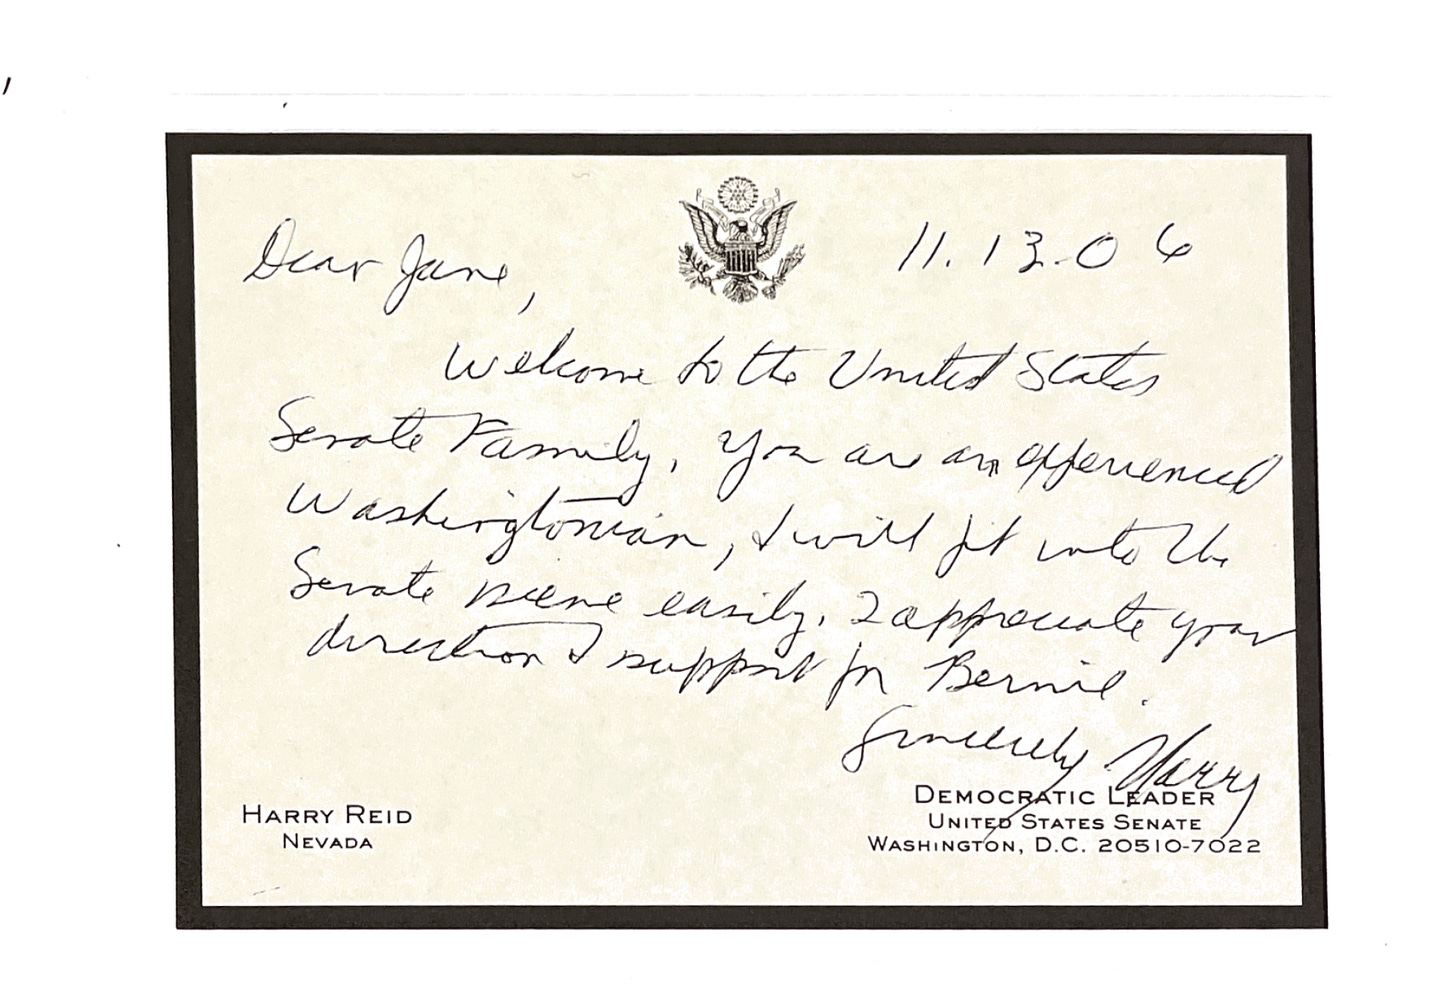 11.13.06
Dear Jane,
Welcome to the United States
Senate Family. You are an experienced
Washingtonian, & will fit into the
Senate scene easily. I appreciate your
direction & support for Bernie.
Sincerely Harry
HARRY REID
NEVADA
DEMOCRATIC LEADER
UNITED STATES SENATE
WASHINGTON, D.C. 20510-7022